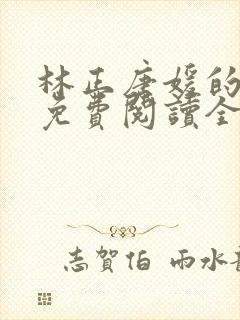 林正唐媛的
免費閱讀全
志賀伯 雨水